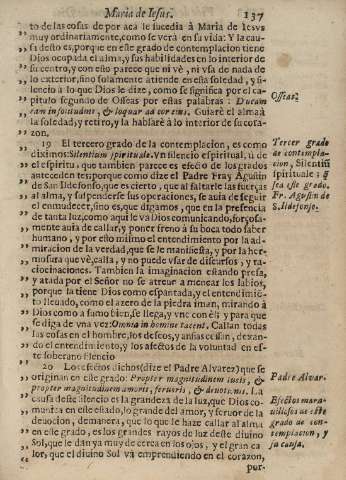 Maria de Iesus. 137
to de las cosas de por aca le sucedia à Maria de Iesvs
muy ordinariamente, como se verà en su vida: Y la cau-
sa desto es, porque en este grado de contemplacion tiene
Dios ocupada el alma, y sus habilidades en lo interior de
su centro, y con esto parece que ni vè, ni vsa de nada de
lo exterior, sino solamente atiende en esta soledad, y si-
lencio à lo que Dios le dize, como se significa por el ca-
pitulo segundo de Osseas por estas palabras: Ducam
eam insolitudine, & loquar ad cor eius. Guiarè el alma à
la soledad, y retiro, y la hablarè à lo interior de su cora-
zon.
Osseas 2
19 El tercero grado de la contemplacion, es como
diximos Silentium spirituale. Vn silencio espiritual, ù de
el espiritu, que tambien parece es efecto de los grados
anteceden tes; porque como dize el Padre Fray Agustin
de San Ildefonso, que es cierto, que al faltarle las fuerças
al alma, y suspenderse sus operaciones, se auia de seguir
el enmudecer, sino es, que digamos, que en la presencia
de tanta luz, como aqui le và Dios comunicando, forçosa-
mente auia de callar, y poner freno à su boca todo saber
humano, y por esto mismo el entendimiento por la ad-
miracion de la verdad, que se le manifiesta, y por la her-
mosura que vè, calla, y no puede vsar de discursos, y ra-
ciocinaciones. Tambien la imaginacion estando presa,
y atada por el Señor no se atreue à menear los labios,
porque la tiene Dios como espantada, y el entendimie-
to lleuado, como el azero de la piedra iman, mirando à
Dios como a sumo bien, se llega, y vne con èl y para que
se diga de vna vez: Omnia in homine tacent. Callan todas
las cosas en el hombre, los deseos, y ansias cessan, dexan-
do el entendimiento, y los afectos de la voluntad en es-
te soberano silencio
Tercer grado
de contempla-
cion, Silentiū
spirituale; q̃
sea este grado.
Fr. Agustin de
S. Ildefonso.
20 Los efectos dichos (dize el Padre Alvarez) que se
originan en este grado: Propter magnitudinem lucis, &
propter magnitudinem amoris, feruoris, & deuotionis. La
causa deste silencio es la grandeza de la luz, que Dios co-
munica en este estado, lo grande del amor, y feruor de la
deuocion, demanera, que lo que le haze callar al alma
en este grado, es los grandes rayos de luz deste diuino
Sol, que le dàn ya muy de cerca en los ojos, y el gran ca-
lor, que el diuino Sol và emprendiendo en el corazon,
por-
Padre Alvar.
Efectos mara-
uillosos de este
grado de con-
templacion, y
su causa.